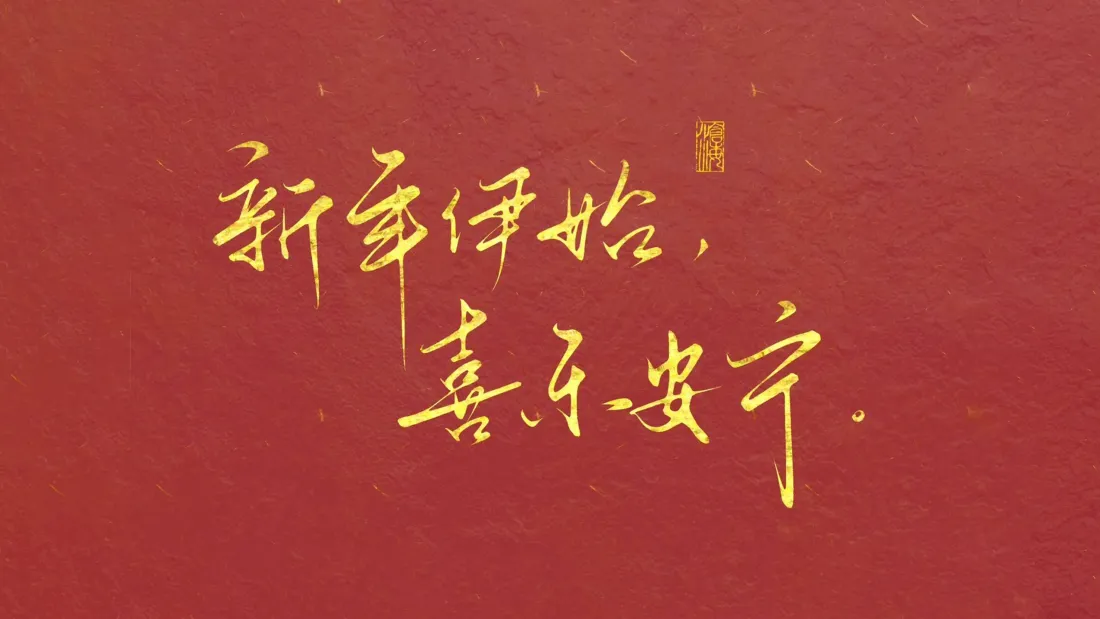 新年伊始，
喜乐安宁。
沧海